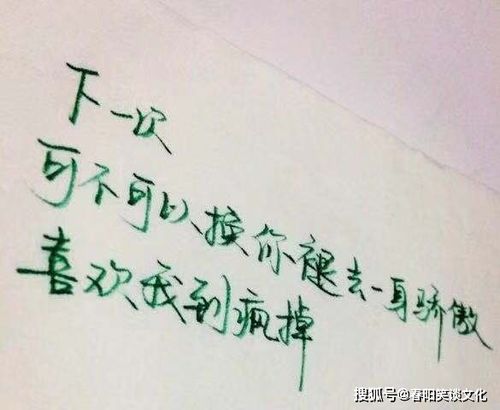 下一次
可不可以换你褪去一身骄傲
喜欢我到疯掉
搜狐号@春阳笑谈文化